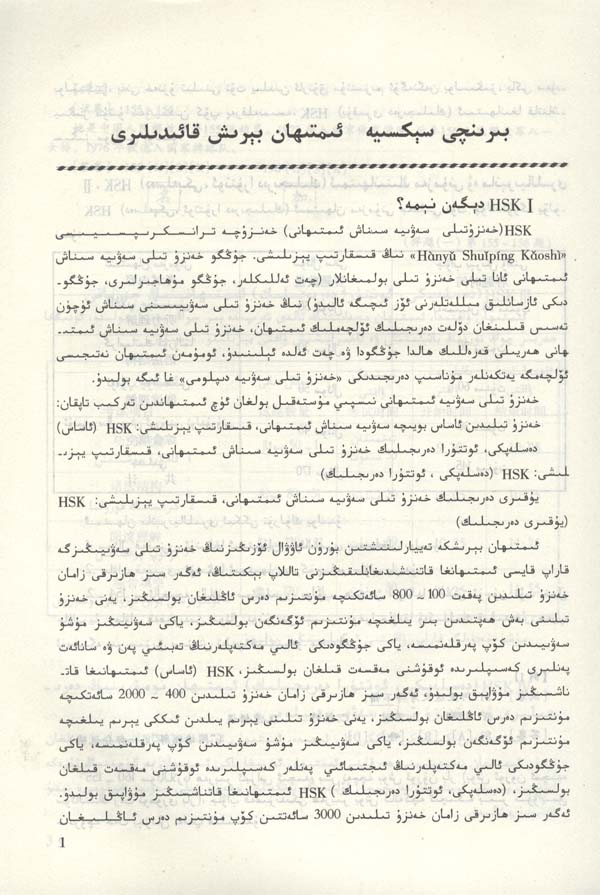 بىرىنچى سېكسىيە ئىمتىھان بېرىش قائىدىلىرى
HSK I دېگەن نېمە؟
HSK (خەنزۇتىلى سەۋىيە سىناش ئىمتىھانى) خەنزۇچە ترانسكرىپسىيىسى
«Hànyǔ Shuǐpíng Kǎoshì» نىڭ قىسقارتىپ يېزىلىشى. جۇڭگو خەنزۇ تىلى سەۋىيە سىناش
ئىمتىھانى ئانا تىلى خەنزۇ تىلى بولمىغانلار (چەت ئەللىكلەر، جۇڭگو مۇھاجىرلىرى، جۇڭگو-
دىكى ئازسانلىق مىللەتلەرنى ئۆز ئىچىگە ئالىدۇ) نىڭ خەنزۇ تىلى سەۋىيىسىنى سىناش ئۈچۈن
تەسىس قىلىنغان دۆلەت دەرىجىلىك ئۆلچەملىك ئىمتىھان، خەنزۇ تىلى سەۋىيە سىناش ئىمتى-
ھانى ھەريىلى قەرەللىك ھالدا جۇڭگودا ۋە چەت ئەلدە ئېلىنىدۇ، ئومۇمەن ئىمتىھان نەتىجىسى
ئۆلچەمگە يەتكەنلەر مۇناسىپ دەرىجىدىكى «خەنزۇ تىلى سەۋىيە دىپلومى» غا ئىگە بولىدۇ.
خەنزۇ تىلى سەۋىيە ئىمتىھانى نىسپىي مۇستەقىل بولغان ئۈچ ئىمتىھاندىن تەركىب تاپقان:
خەنزۇ تىلىدىن ئاساس بويىچە سەۋىيە سىناش ئىمتىھانى، قىسقارتىپ يېزىلىشى: HSK (ئاساس)
دەسلەپكى، ئوتتۇرا دەرىجىلىك خەنزۇ تىلى سەۋىيە سىناش ئىمتىھانى، قىسقارتىپ يېزى-
لىشى: HSK (دەسلەپكى ، ئوتتۇرا دەرىجىلىك)
يۇقىرى دەرىجىلىك خەنزۇ تىلى سەۋىيە سىناش ئىمتىھانى، قىسقارتىپ يېزىلىشى: HSK
(يۇقىرى دەرىجىلىك)
ئىمتىھان بېرىشكە تەييارلىنىشتىن بۇرۇن ئاۋۋال ئۆزىڭىزنىڭ خەنزۇ تىلى سەۋىيىڭىزگە
قاراپ قايسى ئىمتىھانغا قاتنىشىدىغانلىقىڭىزنى تاللاپ بېكىتىڭ، ئەگەر سىز ھازىرقى زامان
خەنزۇ تىلىدىن پەقەت 100 ~ 800 سائەتكىچە مۇنتىزىم دەرس ئاڭلىغان بولسىڭىز، يەنى خەنزۇ
تىلىنى بەش ھەپتىدىن بىر يىلغىچە مۇنتىزىم ئۆگەنگەن بولسىڭىز، ياكى سەۋىيىڭىز مۇشۇ
سەۋىيىدىن كۆپ پەرقلەنمىسە، ياكى جۇڭگودىكى ئالىي مەكتەپلەرنىڭ تەبىئىي پەن ۋە سانائەت
پەنلىرى كەسىپلىرىدە ئوقۇشنى مەقسەت قىلغان بولسىڭىز، HSK (ئاساس) ئىمتىھانىغا قات-
ناشسىڭىز مۇۋاپىق بولىدۇ، ئەگەر سىز ھازىرقى زامان خەنزۇ تىلىدىن 400 ~ 2000 سائەتكىچە
مۇنتىزىم دەرس ئاڭلىغان بولسىڭىز، يەنى خەنزۇ تىلىنى يېرىم يىلدىن ئىككى يېرىم يىلغىچە
مۇنتىزىم ئۆگەنگەن بولسىڭىز، ياكى سەۋىيىڭىز مۇشۇ سەۋىيىدىن كۆپ پەرقلەنمىسە، ياكى
جۇڭگودىكى ئالىي مەكتەپلەرنىڭ ئىجتىمائىي پەنلەر كەسىپلىرىدە ئوقۇشنى مەقسەت قىلغان
بولسىڭىز، (دەسلەپكى، ئوتتۇرا دەرىجىلىك ) HSK ئىمتىھانىغا قاتناشسىڭىز مۇۋاپىق بولىدۇ.
ئەگەر سىز ھازىرقى زامان خەنزۇ تىلىدىن 3000 سائەتتىن كۆپ مۇنتىزىم دەرس ئاڭلىغان
1